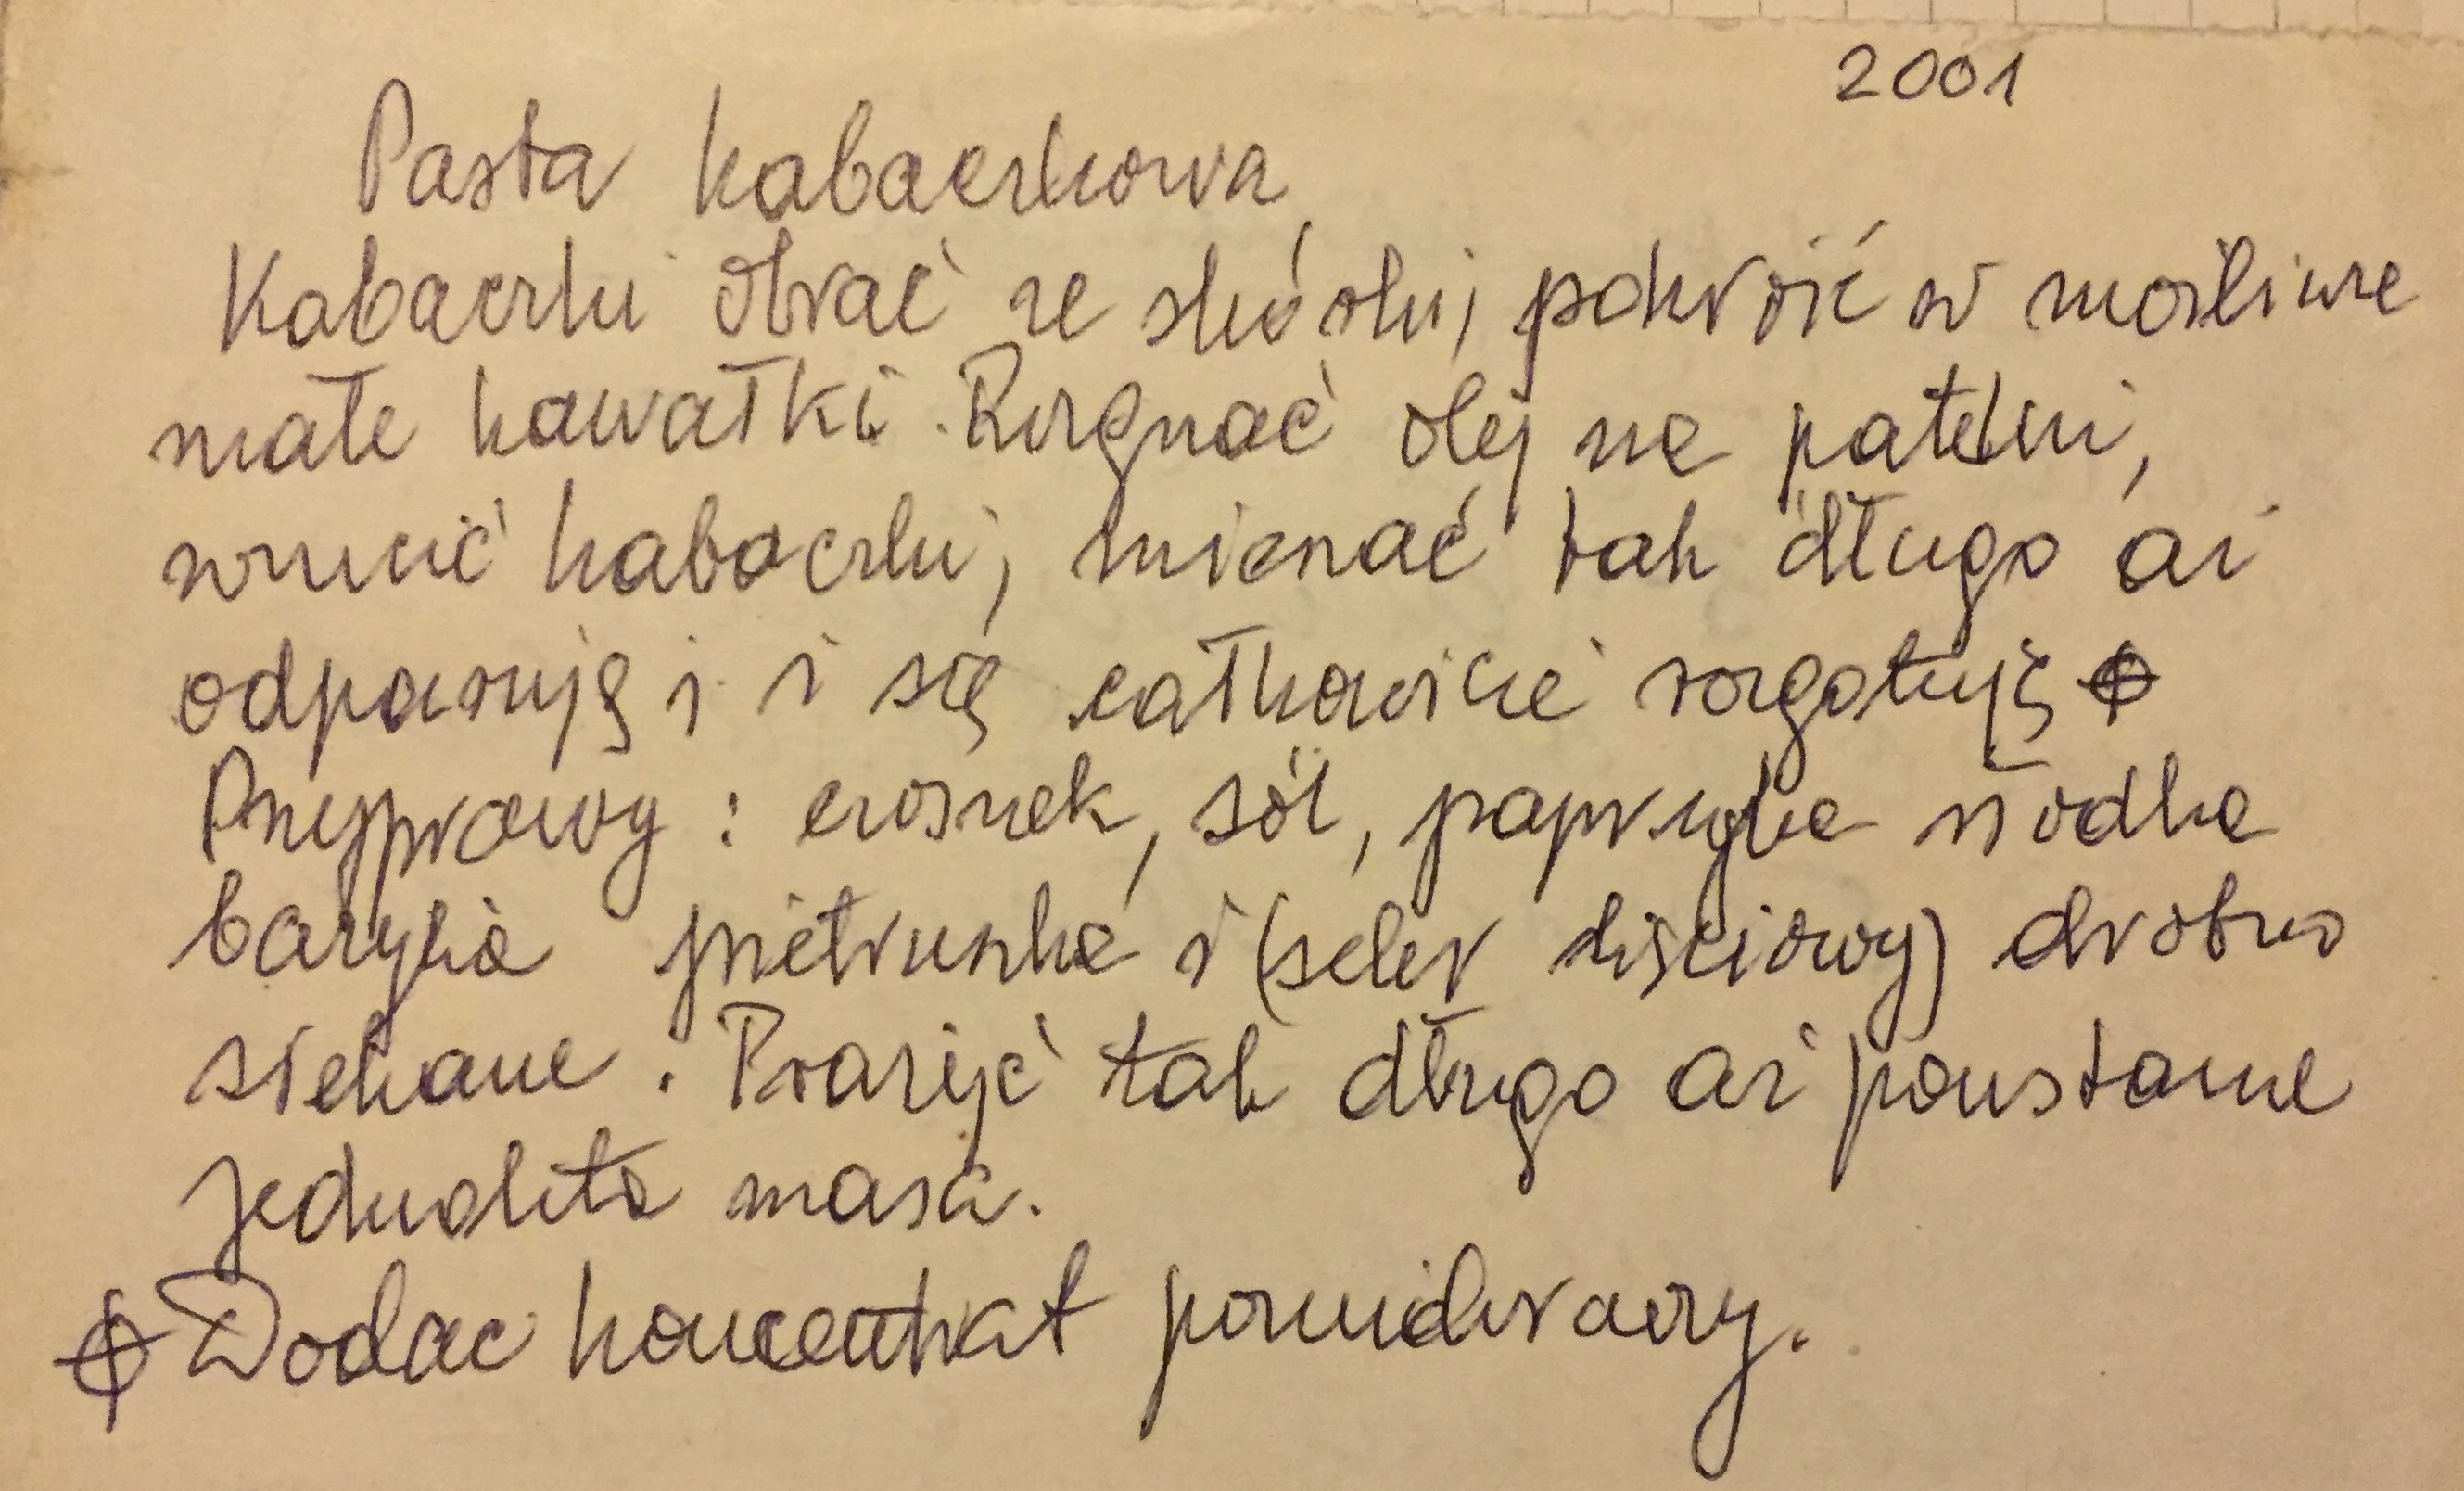 2001
Pasta kabaczkowa
Kabaczki obrać ze skórki, pokroić w możliwie
małe kawałki. Rozgrzać olej na patelni,
wrzucić kabaczki, smażyć tak długo aż
odparują i się całkowicie rozgotują ⌽
Przyprawy: czosnek, sól, papryka słodka
bazylia pietruszka i (seler liściowy) drobno
siekane. Prażyć tak długo aż powstanie
jednolita masa.
⌽ Dodac koncentrat pomidorowy.